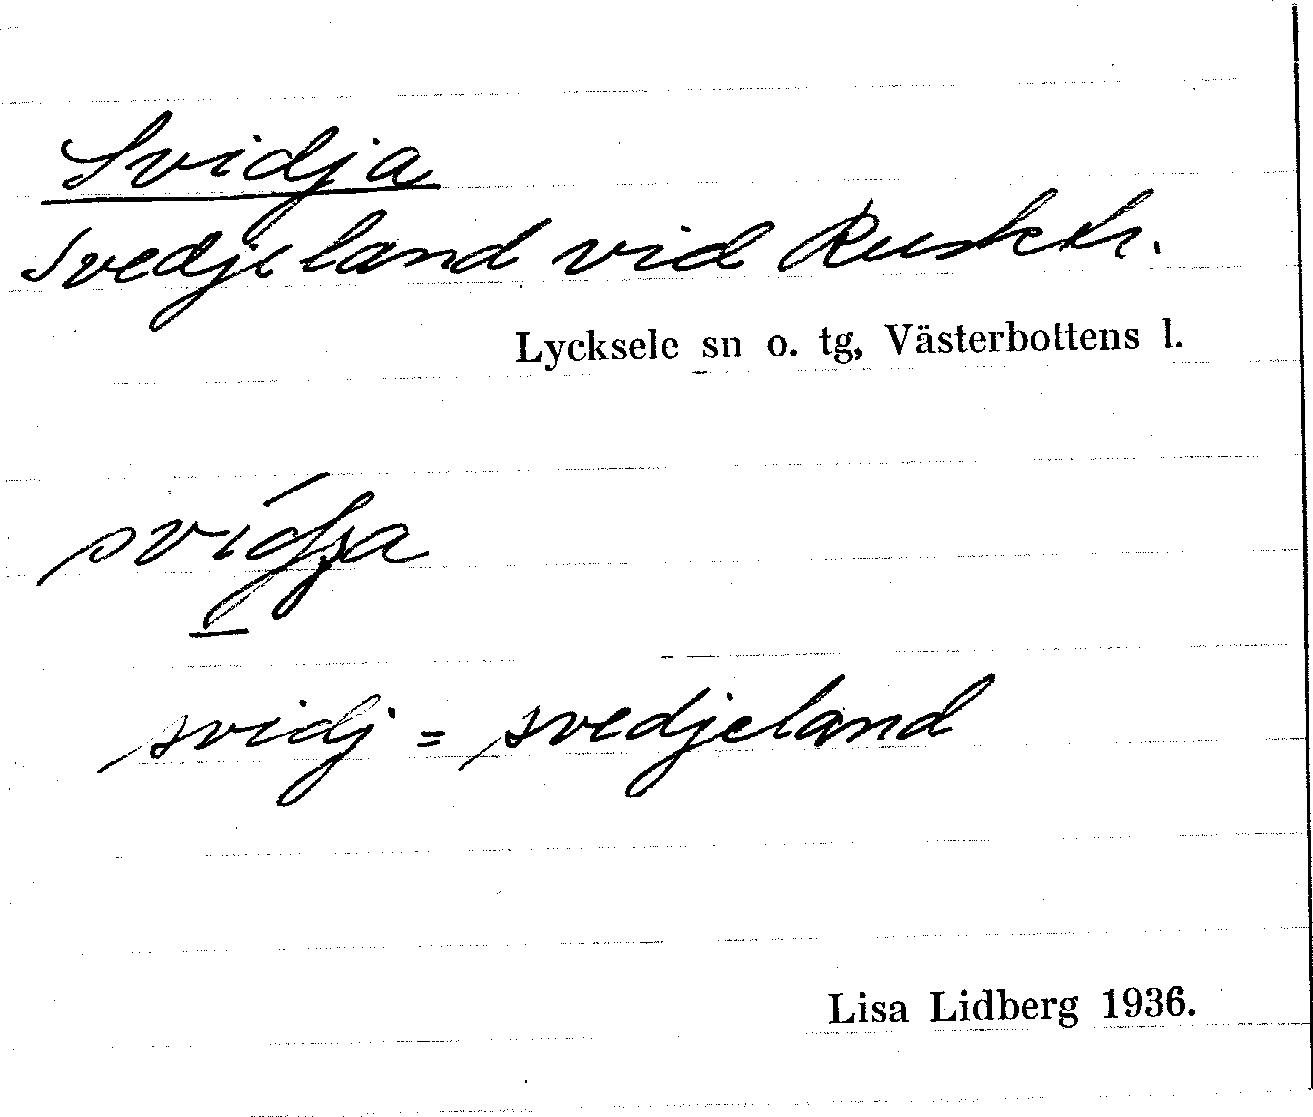 Svidja
Svedjeland vid
Lycksele sn o. tg, Västerbottens l.
svidj = svedjeland
Lisa Lidberg 1936.